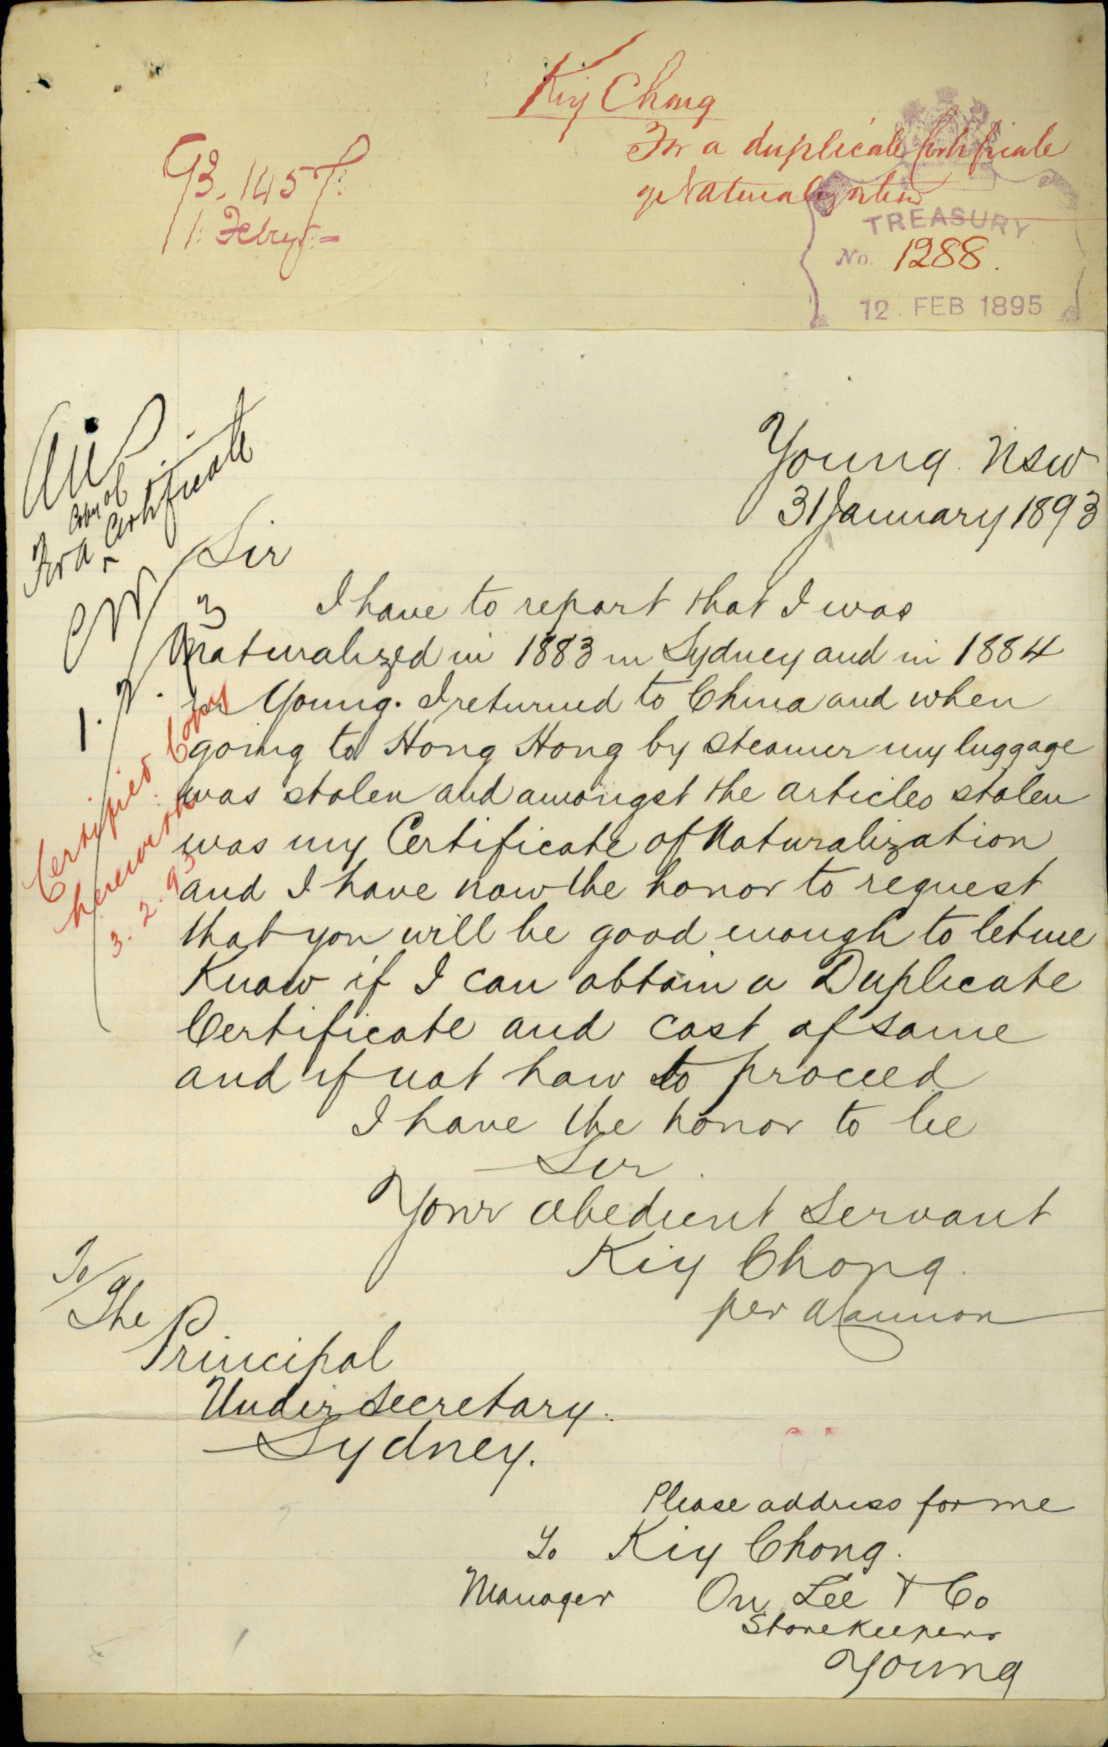 Kiy Chong
For a duplicate Certificate
of Naturalization
93.1457.
1. Febry
TREASURY
No. 1288.
12 FEB 1895
Young NSW
31 January 1893
For a Copy of Certificate
Sir
I have to report that I was
Naturalized in 1883 in Sydney and in 1884
Young. I returned to China and when
going to Hong Hong by steamer my luggage
was stolen and amongst the articles stolen
was my Certificate of Naturalization
and I have now the honor to request
that you will be good enough to let me
Know if I can obtain a Duplicate
Certificate and cost of same
and if not how to proceed
I have the honor to be
Sir
Your obedient Servant
Kiy Chong.
per
Certified Copy
herewith
3.2.93
To/
The
Principal
Under Secretary.
Sydney.
Please address for me
To Kiy Chong.
Manager On Lee & Co
Storekeepers
Young